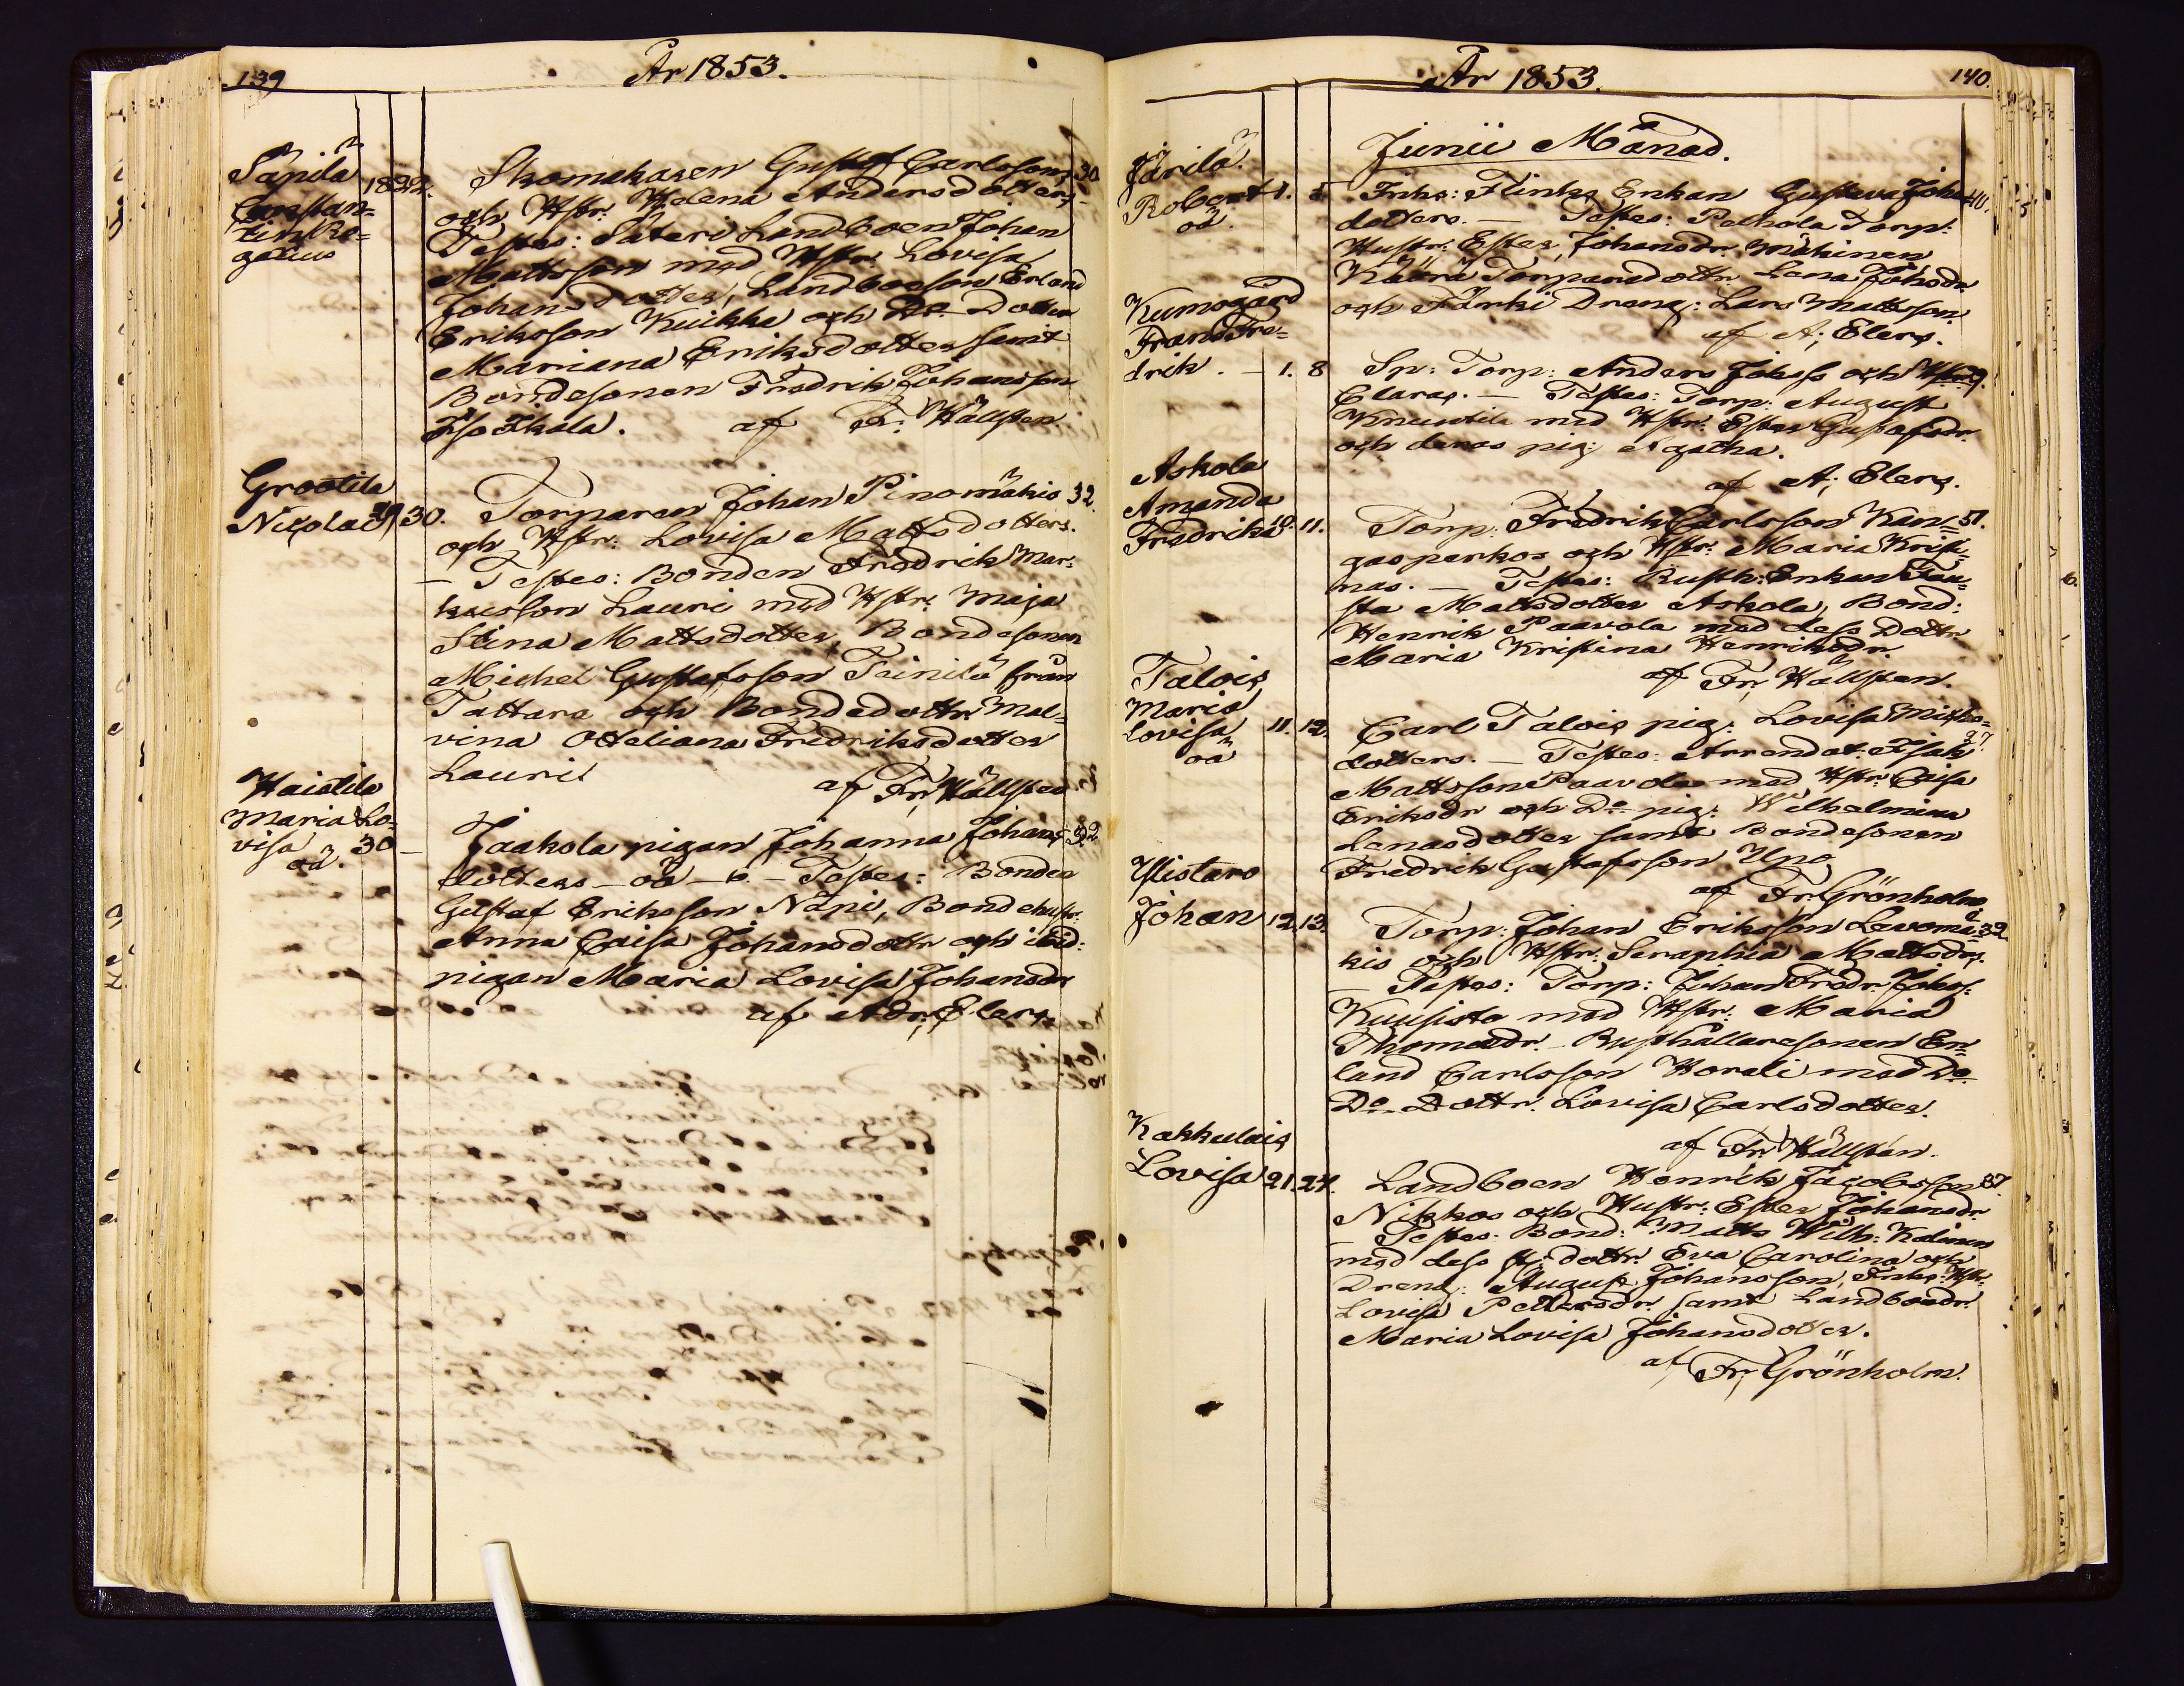 139
År 1853.
Säpilä
Constan=
tin Re=
galius
18 22.
Skomakaren Gustaf Carlsson, 30.
och Hstr. Helena Andersdotters
Testes: Säteri Landboen Johan
Mattsson med Hstr. Lovisa
Johansdotter, Landboeson Erland
Eriksson Kuikka och Do Dotter
Mariana Eriksdotter samt
Bondesonen Fredrik Johansson
Iso Ikala. af Fr. Hällsten
Grootila
Nicolaus 29 30.
Torparen Johan Pinomäkis 32.
och Hstr. Lovisa Mattsdotters.
— Testes: Bonden Fredrik Mar=
kusson Lauri med Hstr. Maja
Stina Mattsdotter, Bondesonen
Michel Gustafsson Teinilä från
Tattara och Bondedottr. Mal=
vina Otteliana Fredriksdotter
Lauri
af Fr. Hällsten
Haistila
Maria Lo=
visa
oä. 30 —
Jaakola pigan Johanna Johans 32
dotters — oä — b. — Testes: Bonden
Gustaf Eriksson Näpi, Bondehustr.
Anna Caisa Johansdottr. och ibid:
pigan Maria Lovisa Johansdr
af Adr. Elers.
År 1853.
140.
Junii Månad.
Järilä
Robert 1. 5
oä.
Friks: Flinks Enkan Gustava Joha 40.
dotters. — Testes: Pelkola Torp:
Hustr: Ester Johansdr. Mäkinen
Käärä Torparedottr. Lena Johsdr.
och Särki Dräng: Lars Mattsson.
af A; Elers.
Kumogård
Frans Fre=
drik. — 1. 8
Sp: Torp: Anders Johss och Hstr. 29.
Claras. — Testes: Torp: August
Knuutila med Hstr. Ester Gustafsdr.
och deras pig: Agatha.
af A; Elers.
Askola
Amanda
Fredrika 10. 11.
Torp: Fredrik Carlsson Kan= 51.
gasperkos och Hstr. Maria Krist=
nas. — Testes: Rusth: Enkan Jau=
sta Mattsdotter Askola, Bond:
Henrik Paavola med dess Dottr
Maria Kristina Henriksdr.
af Fr. Hällsten.
Talois
Maria
Lovisa 11. 12.
oä
Carl Talois pig: Lovisa Michs= 37.
dotters. — Testes: Arrendat: Isak
Mattsson Paavola med Hstr. Caisa
Eriksdr och Do pig: Wilhelmina
Lenasdotter samt Bondesonen
Fredrik Gustafsson Uno
af Fr. Grönholm
Ylistaro
Johan 12. 13.
Torp: Johan Eriksson Levomä= 32.
kis och Hstr. Seraphia Mattsdrs.
— Testes: Torp: Johan Fredr. Johss:
Kuusisto med Hstr. Maria
Thomasdr. Rusthållaresonen Er=
land Carlsson Horali med Do
Do Dottr. Lovisa Carlsdotter.
af Fr. Hällsten.
Kakkulais
Lovisa 21. 24.
Landboen Henrik Jacobsson 37.
Nikkos och Hustr: Ester Johansdr.
— Testes: Bond: Matts Wilh: Kalinen
med dess stj: dottr. Eva Carolina och
Dräng: August Johansson, Inhs: Hstr.
Lovisa Pettersdr. samt Landboedr.
Maria Lovisa Johansdotter.
af Fr. Grönholm.